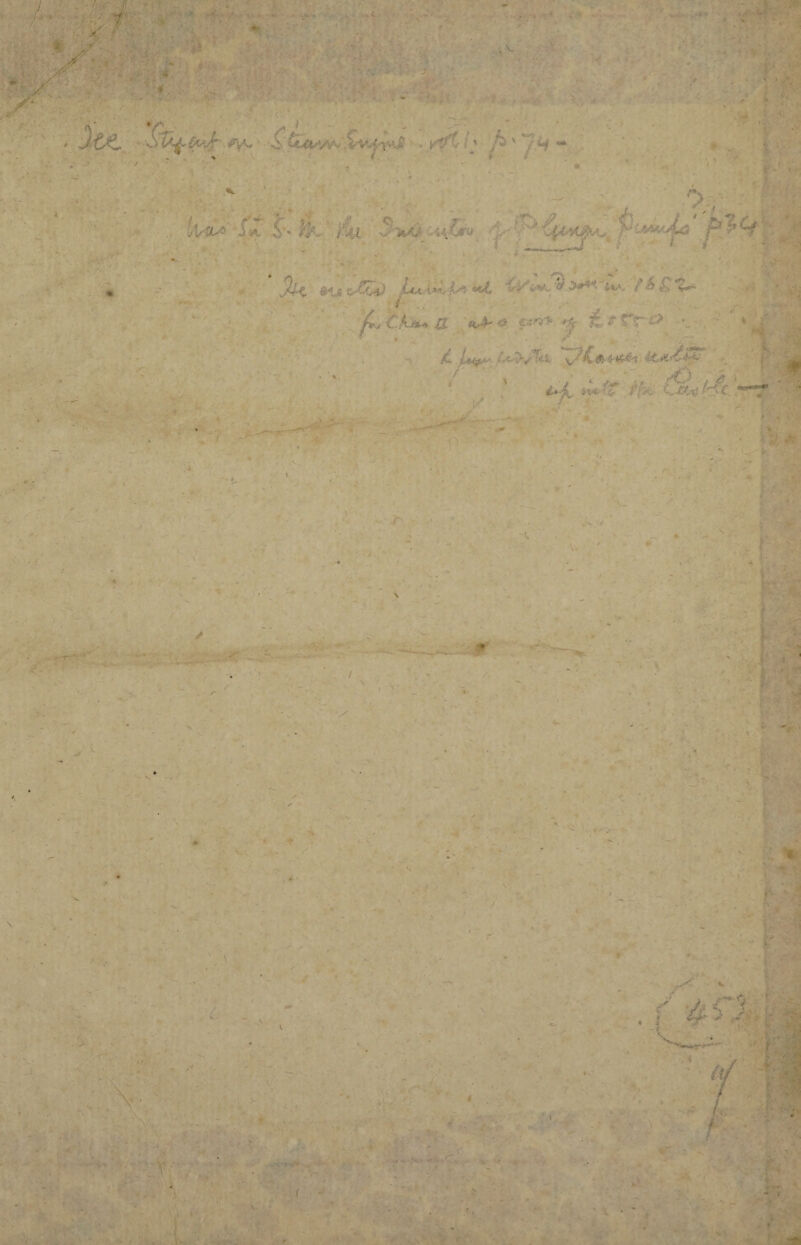 See Stuart on Steam Engine vol 1. p. 74 -
Was Sir S. M. the Inventor of Plunger Pumps? p 34
He erected pumps at Windsor in 1682
for Chas II at a cost of
& the Thames water
up into the Castle —
453